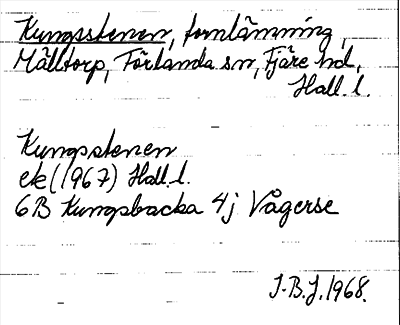 Kungsstenen, fornlämning,
Mälltorp, Förlanda sn, Fjäre hd,
Hall. l.
Kungsstenen
ek (1967) Hall. l.
6B Kungsbacka 4j Vågerse
J.B.J. 1968.